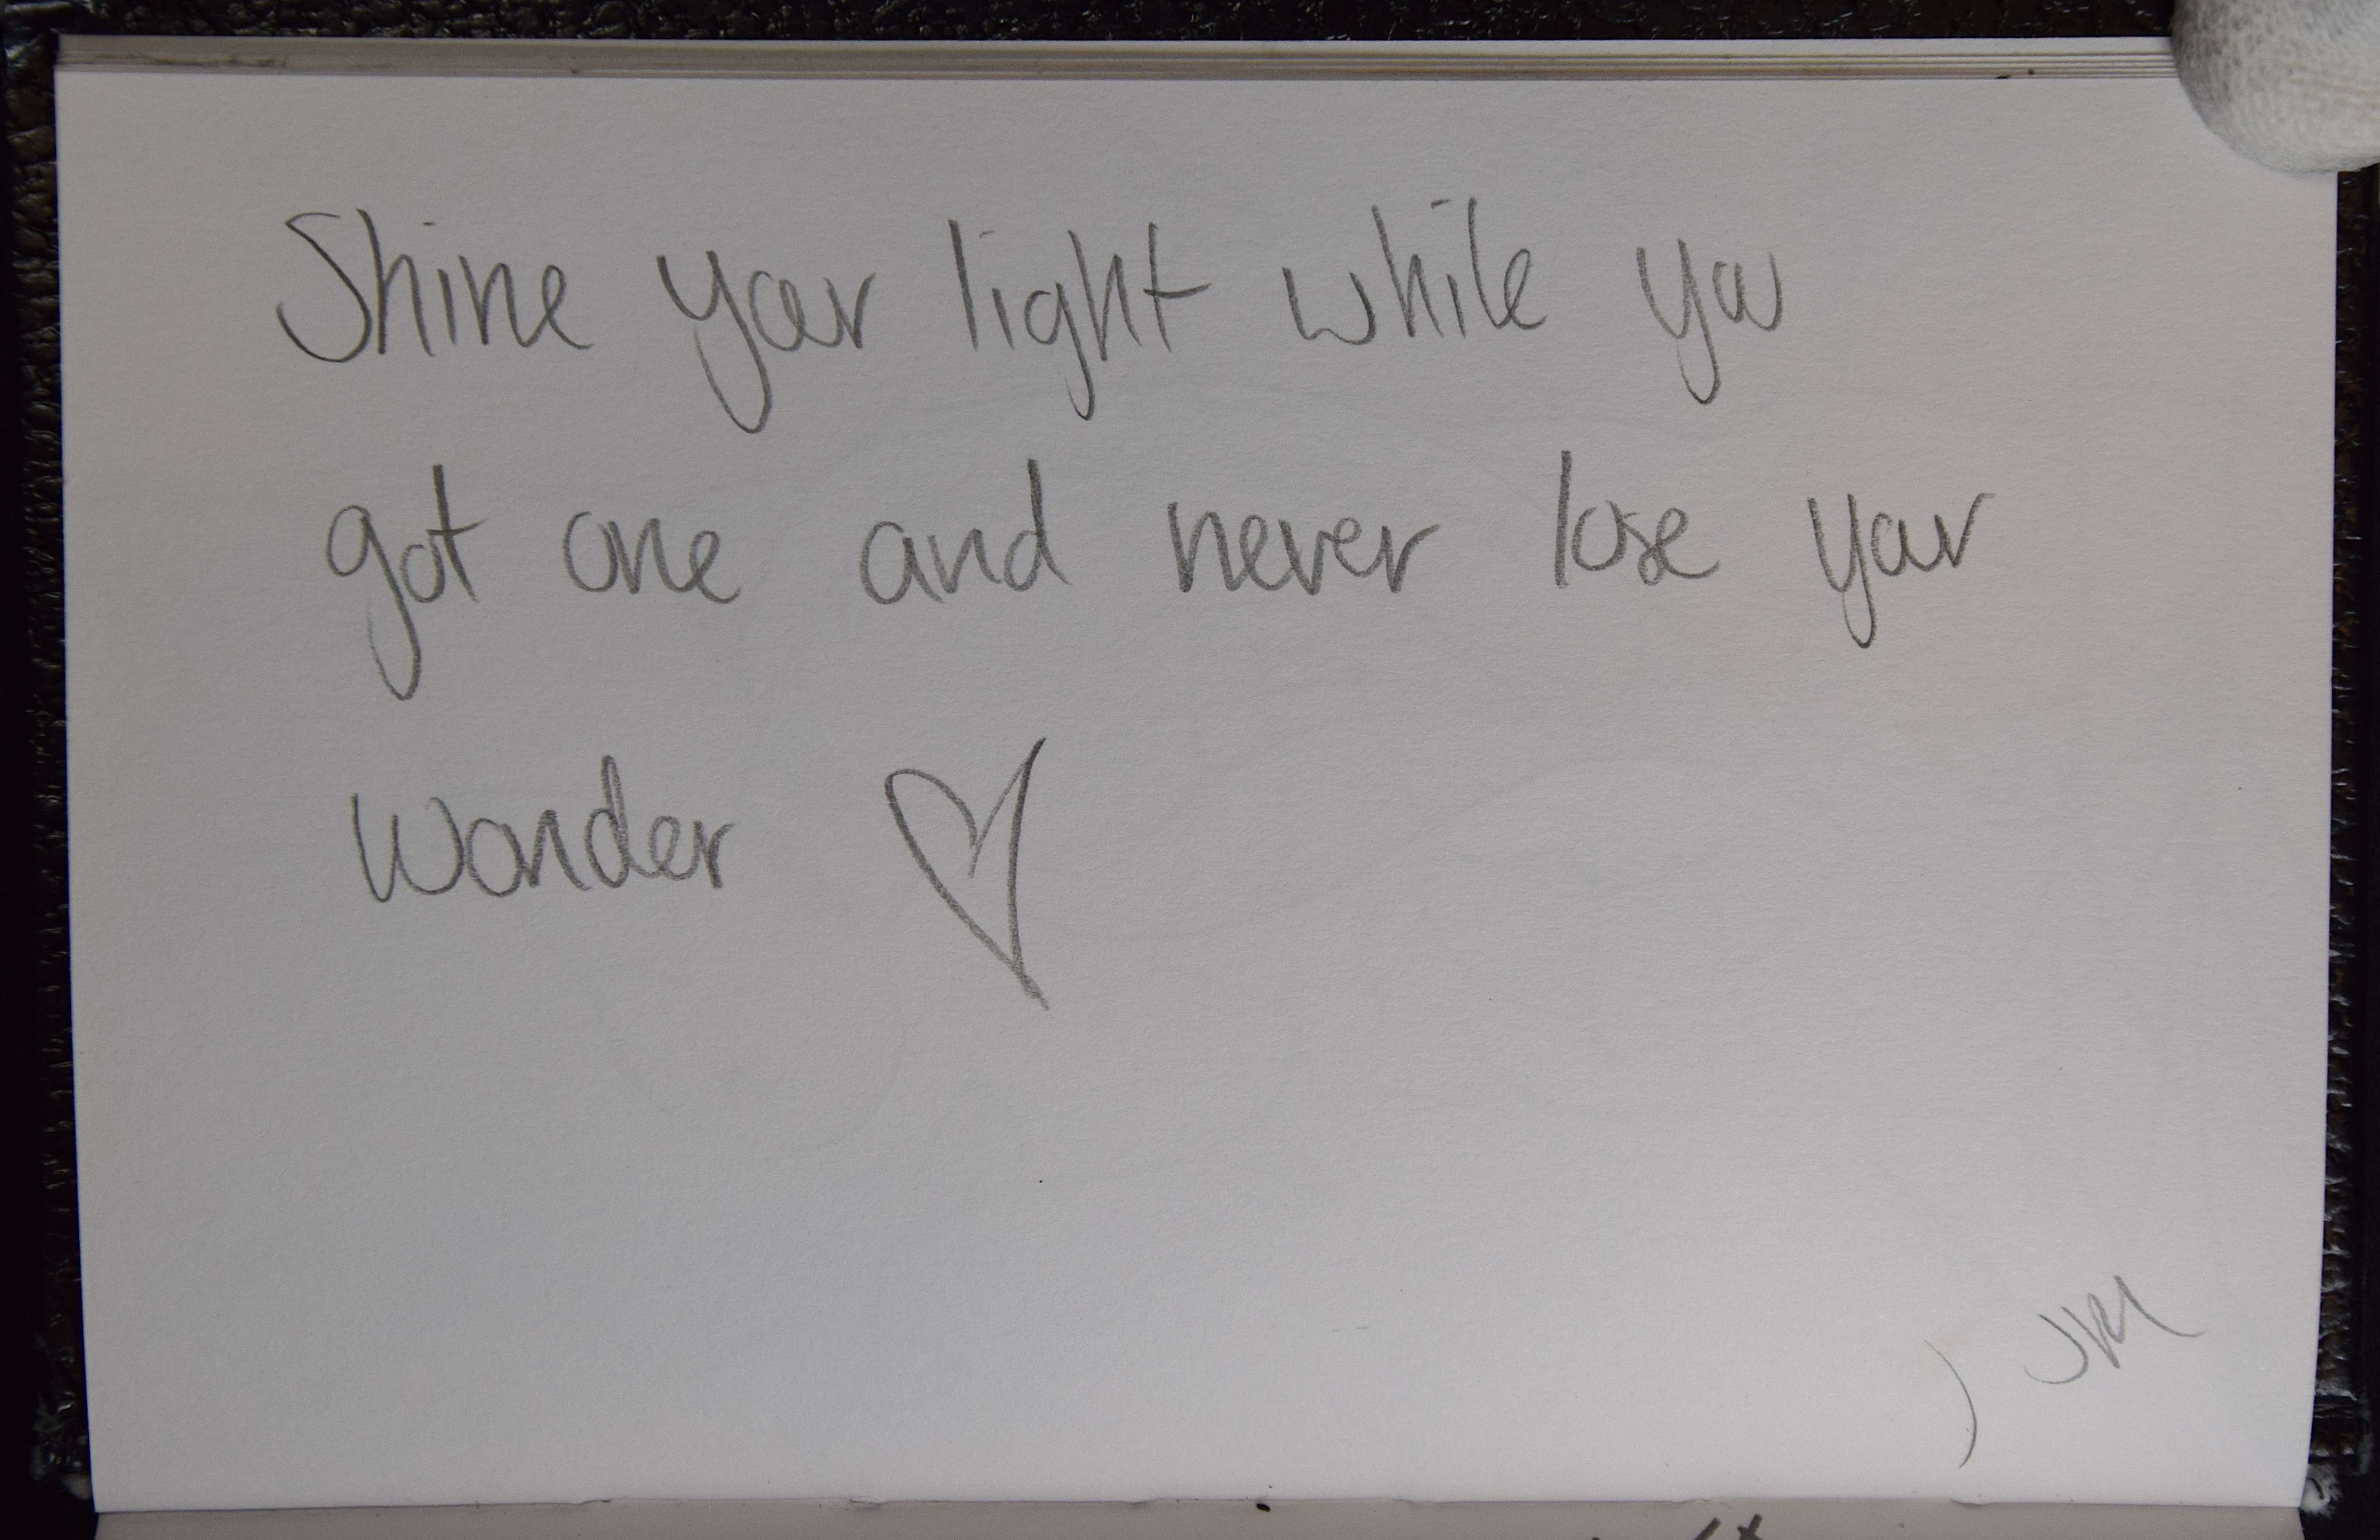 Shine your light while you
got one and never lose your
wonder ♡
JM